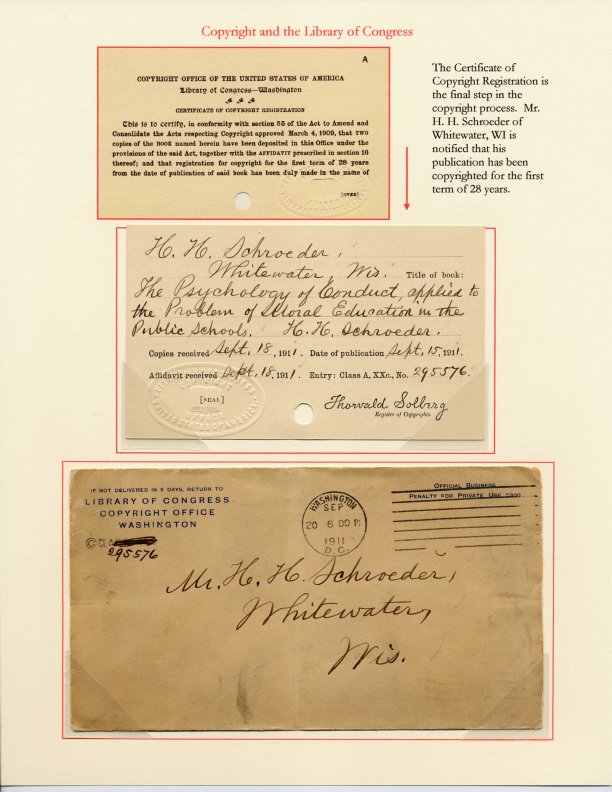 Copyright and the Library of Congress
A
COPYRIGHT OFFICE OF THE UNITED STATES OF AMERICA
Library of Congress—Washington
CERTIFICATE OF COPYRIGHT REGISTRATION
This is to certify, in conformity with section 55 of the Act to Amend and
Consolidate the Acts respecting Copyright approved March 4, 1909, that TWO
copies of the BOOK named herein have been deposited in this Office under the
provisions of the said Act, together with the AFFIDAVIT prescribed in section 16
thereof; and that registration for copyright for the first term of 28 years
from the date of publication of said book has been duly made in the name of
[OVER]
The Certificate of
Copyright Registration is
the final step in the
copyright process. Mr.
H. H. Schroeder of
Whitewater, WI is
notified that his
publication has been
copyrighted for the first
term of 28 years.
H. H. Schroeder,
Whitewater, Wis. Title of book:
The Psychology of Conduct, applied to
the Problem of Moral Education in the
Public Schools. H. H. Schroeder.
Copies received Sept. 18, 1911. Date of publication Sept. 15, 1911.
Affidavit received Sept. 18, 1911. Entry: Class A, XXc., No. 295576.
[SEAL]
Thorvald Solberg
Register of Copyrights
IF NOT DELIVERED IN 5 DAYS, RETURN TO
LIBRARY OF CONGRESS
COPYRIGHT OFFICE
WASHINGTON
295576
WASHINGTON
SEP
20 6 00 P
1911
D.C.
OFFICIAL BUSINESS
PENALTY FOR PRIVATE USE, $300
Mr. H. H. Schroeder,
Whitewater,
Wis.